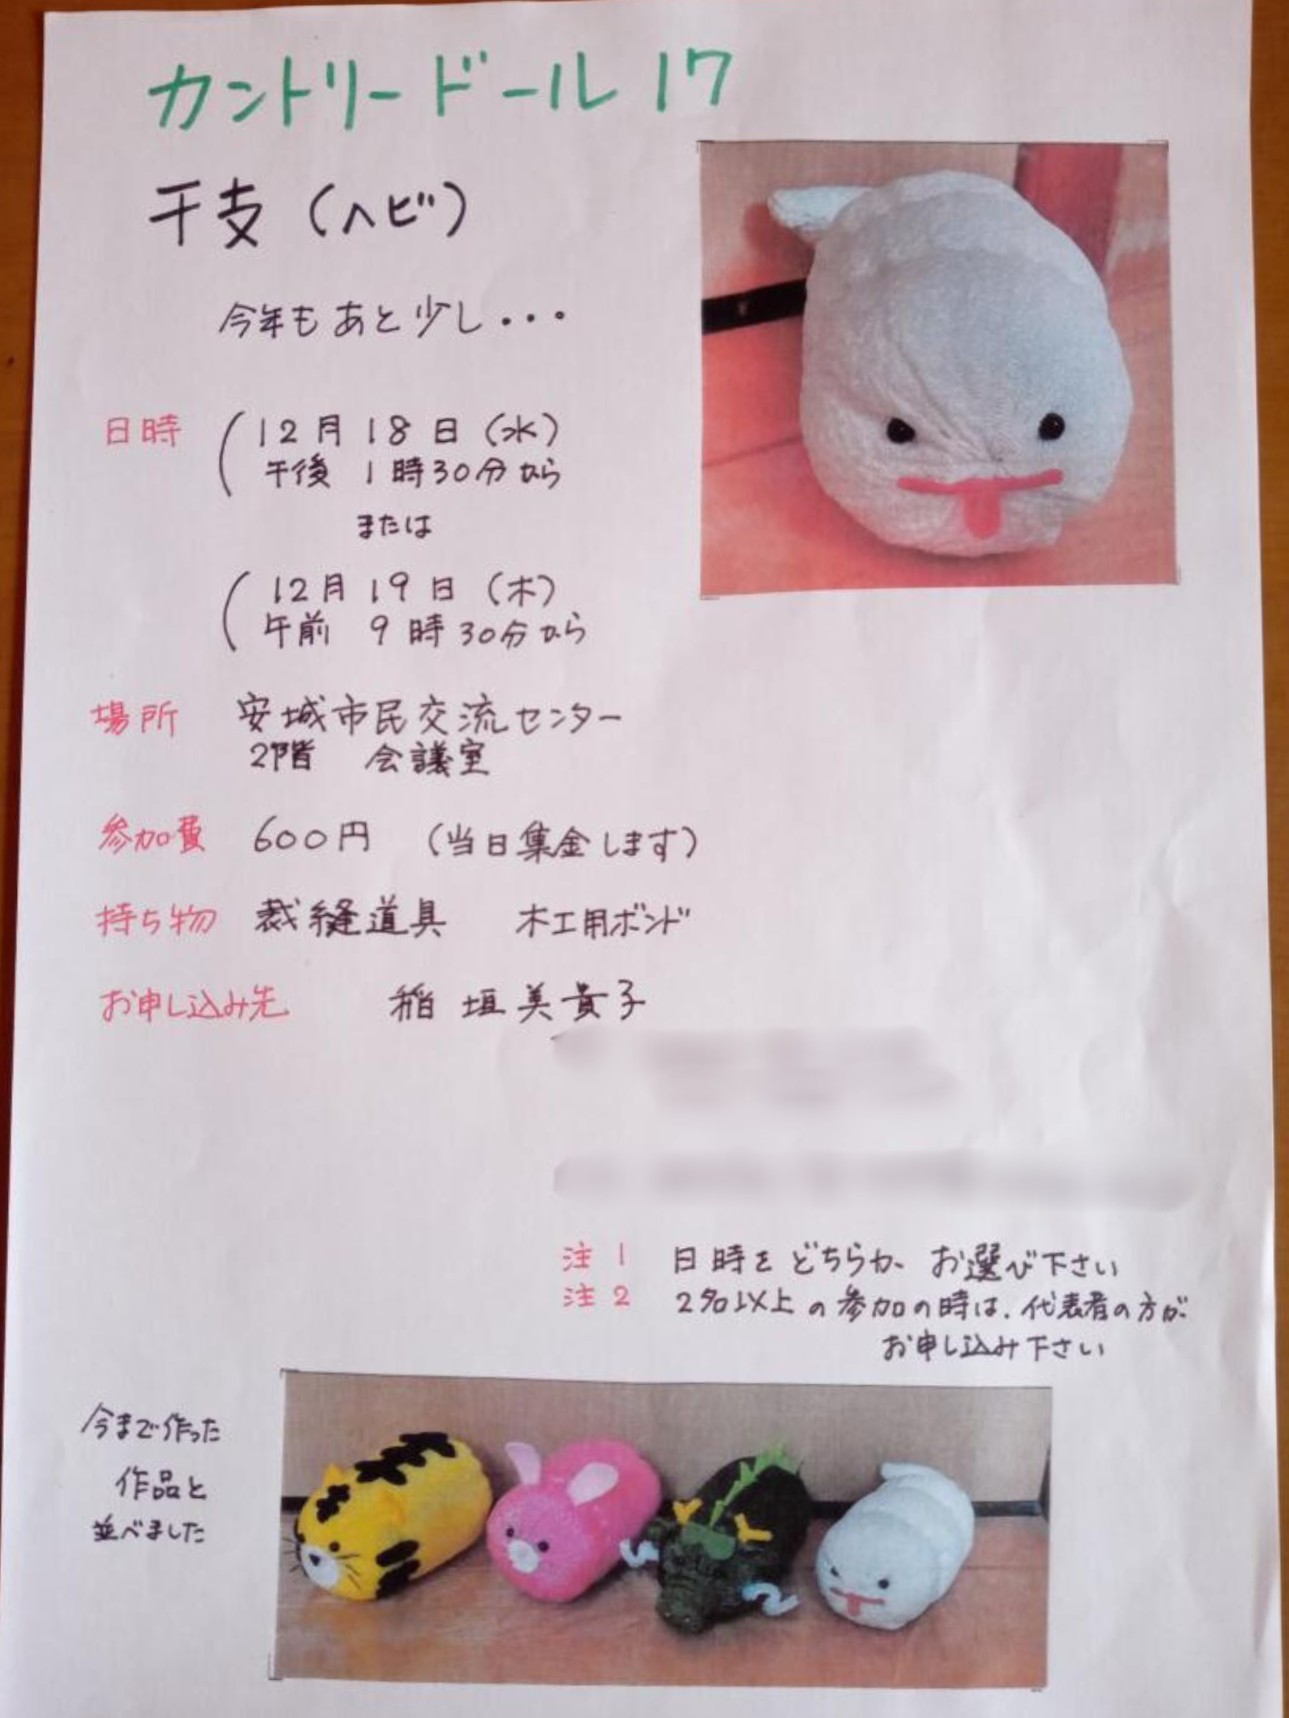 カントリードール17
干支（ヘビ）
今年もあと少し・・・
日時 12月18日（水）
午後 1時30分から
または
12月19日（木）
午前 9時30分から
場所 安城市民交流センター
2階 会議室
参加費 600円 （当日集金します）
持ち物 裁縫道具 木工用ボンド
お申し込み先 稲垣美貴子
注1 日時をどちらか お選び下さい
注2 2名以上の参加の時は、代表者の方が
お申し込み下さい
今まで作った
作品と
並べました